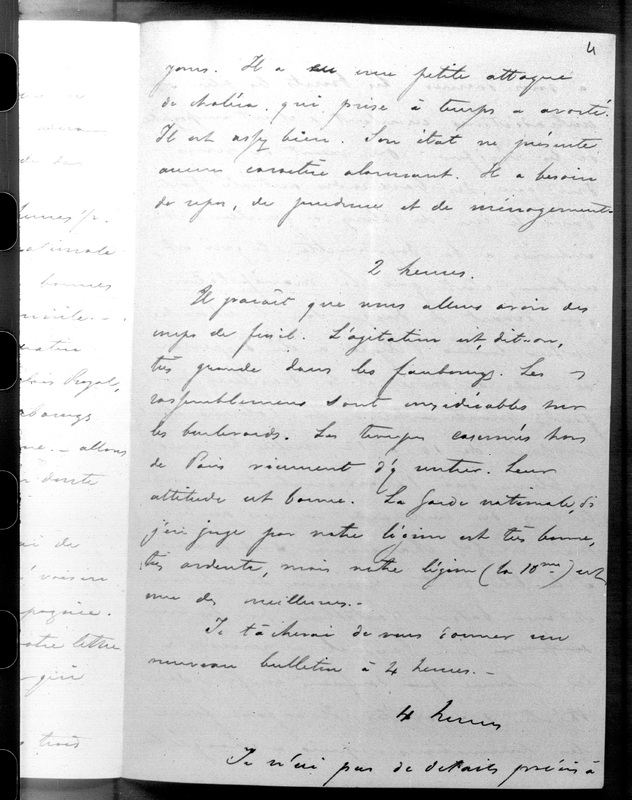 4
jours. Il a eu une petite attaque
de choléra, qui prise à temps a avorté.
Il est assez bien. Son état ne présente
aucun caractère alarmant. Il a besoin
de repos, de prudence et de ménagements
2 heures.
Il paraît que nous allons avoir des
coups de fusil. L'agitation est, dit-on,
très grande dans les faubourgs. Les
rassemblements sont considérables sur
les boulevards. Les troupes casernées hors
de Paris viennent d'y entrer. Leur
attitude est bonne. La Garde nationale, si
j'en juge par notre légion est très bonne,
très ardente, mais notre légion (la 10me) est
une des meilleures.-
Je tâcherai de vous donner un
nouveau bulletin à 4 heures.-
4 heures
Je n'ai pas de détails précis à
nationale
bonnes
Royal,
allons
doute
ai de
voisin
notre lettre
trois